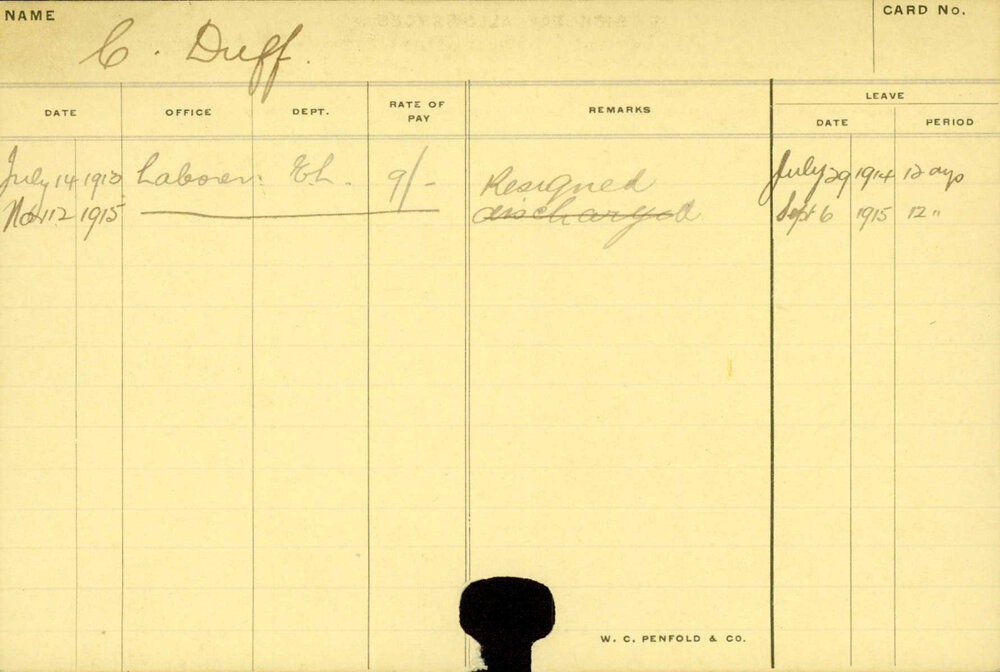 NAME
C. Duff.
CARD No.
DATE OFFICE DEPT. RATE OF PAY REMARKS LEAVE
DATE PERIOD
July 14 1913 Laborer. 9/- Resigned July 29 1914 12 days
Nov 12 1915 discharged Sept 6 1915 12 "
W. C. PENFOLD & CO.